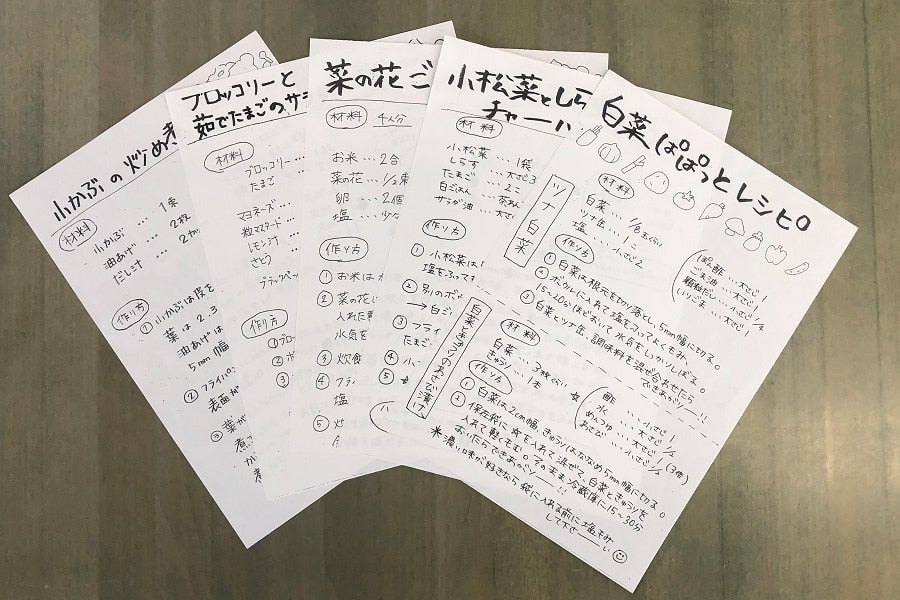 小かぶの炒め煮
材料
小かぶ … 1束
油あげ … 2枚
だし汁 … 2カッ
作り方
① 小かぶは皮を
葉は2.3
油あげは
5mm幅
② フライパン
表面が
③ 葉が
煮
が煮
ブロッコリーと
茹でたまごのサ
材料
ブロッコリー…
たまご …
マヨネーズ…
粒マスタード…
レモン汁…
さとう …
ブラックペッ
作り方
①ブロ
②ボ
③
菜の花ご
材料 4人分
お米 … 2合
菜の花 … 1/2束
卵 … 2個
塩 … 少々
作り方
① お米は
② 菜の花に
入れた
水気を
③ 炊飯
④ フラ
塩
⑤ 炊
小松菜としら
チャーハ
材料
小松菜 … 1袋
しらす … 大さじ3
たまご … 2コ
白ごはん … 茶わん
サラダ油 … 大さじ
作り方
① 小松菜は
塩をふって
② 別のボ
→白ご
③ フライ
たまご
④ 小
⑤
白菜ぱぱっとレシピ
ツナ白菜
材料
白菜 … 1/8玉くらい
ツナ缶 … 1コ
塩 … 小さじ2
ぽん酢 … 大さじ1
ごま油 … 大さじ1
顆粒だし … 小さじ1/2
いりごま … 大さじ1
作り方
① 白菜は根元を切り落とし、5mm幅に切る。
② ボウルに入れて塩をふってよくもみ
15~20分ほどおいて水分をしっかりしぼる。
③ 白菜とツナ缶、調味料を混ぜ合わせたら
できあがり──!!
白菜ときゅうりのわさび漬け
材料
白菜 … 3枚くらい
きゅうり … 1本
☆
酢 … 小さじ1
水 … 大さじ1
めんつゆ … 大さじ1
わさび … 小さじ1/2 (3倍)
作り方
① 白菜は2cm幅、きゅうりはななめ5mm幅に切る。
② 保存袋に☆を入れて混ぜて、白菜ときゅうりを
入れて軽くもむ。そのまま冷蔵庫に15~30分
おいたらできあがり──!!
*濃い味が好きなら袋に入れる前に塩もみ
して下さーい☺